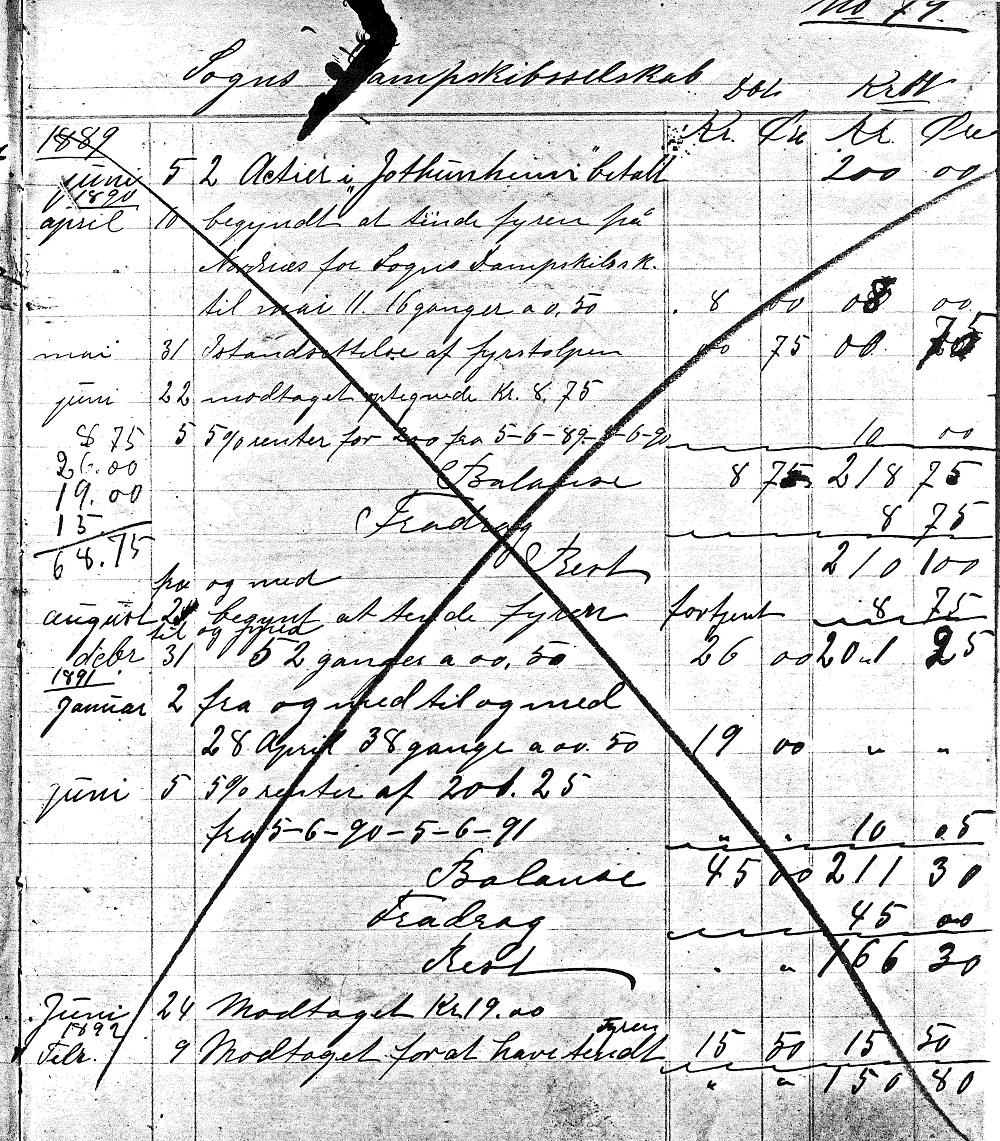 No 79.
Sogns Dampskibsselskab Det Kredt
Kr. Øre Kr. Øre
1889
juni 5 2 Actier i "Jothunheim" betalt 200 00
1890
april 10 begyndt at tënde fyren på
Nordnæs for Sogns Dampskibssk.
til mai 11. 16 ganger a 0,50 8 00 8 00
mai 31 Istandsettelse af fyrstolpen 00 75 00 75
juni 22 modtaget Kr. 8,75
5 5% renter for 200 fra 5-6-89-5-6-90 10 00
8 75
26.00
19.00
15
68.75
Balanse 8 75 218 75
Fradrag 8 75
Rest 210 00
fra og med
august begynt at tende fyren fortjent 8 75
til og med
debr 31 52 ganger a 00,50 26 00 201 25
1891
Januar 2 fra og med til og med
28 April 38 gange a 00.50 19 00 " "
juni 5 5% renter af 201.25
fra 5-6-90-5-6-91 " " 10 05
Balanse 45 00 211 30
Fradrag 45 00
Rest " " 166 30
Juni 24 Modtaget Kr. 19.00
1892
Febr. 9 Modtaget for at have tendt fyren 15 50 15 50
" " 150 80